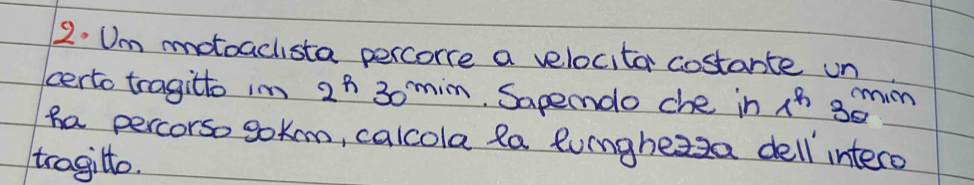 2. Un motociclista percorre a velocità costante un
certo tragitto in 2h 30min. Sapendo che in 1h 30min
ha percorso 90km, calcola la lunghezza dell'intero
tragitto.